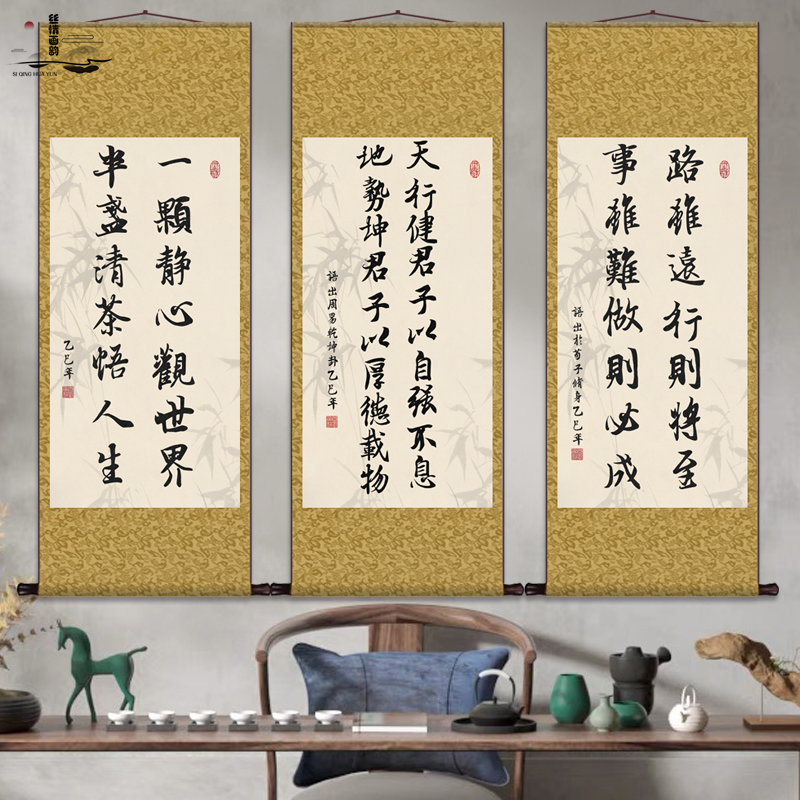 丝情画韵
SI QING HUA YUN
一顆静心觀世界
半盞清茶悟人生
乙巳年
天行健君子以自强不息
地勢坤君子以厚德載物
語出周易乾坤卦乙巳年
路雖遠行則將至
事雖難做則必成
語出於荀子修身乙巳年